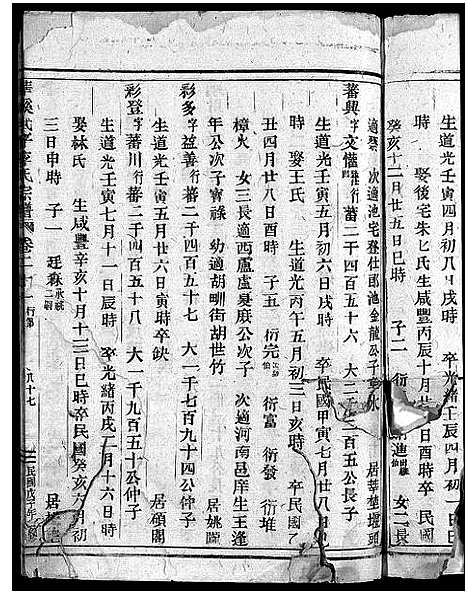 生道光壬寅四月初八日戌時 卒光緒壬辰四月初一日
時 娶後宅朱氏生咸豐丙辰十月廿 日酉時卒 民國
癸亥十二月廿五日巳時 子二 衍 衍漣 女二長
適 次適池宅登仕郎池金龍公子 居莘塋壇頭
蕃興字文懂 行蕃二千四百五十六 大二千 百五公長子
生道光壬寅五月初六日戌時 卒民國甲寅七月廿八日
時 娶王氏 生道光丙午五月初三日亥時 卒民國乙
丑四月廿八日酉時 子五 衍完 衍富 衍發 衍堆
樟火 女三長適西盧盧夏廐公次子 次適河南邑庠生王逢
年公次子甯祿 幼適胡甽街胡世竹 居姚
彩多字益善 行蕃二千四百五十七 大一千七百九十四公仲子
生道光壬寅五月廿六日寅時卒缺 居碩閣
彩登字蕃川 行蕃二千四百五十八 大一千九百五十公仲子
生道光壬寅七月十一日辰時 卒光緒丙戌二月十六日時
娶林氏 生咸豐辛亥十月十三日巳時卒民國癸亥六月初
三日申時 子一 廷森承祧二嗣 居
氏宗譜 卷二十一 行部 八十七 民國戊子年